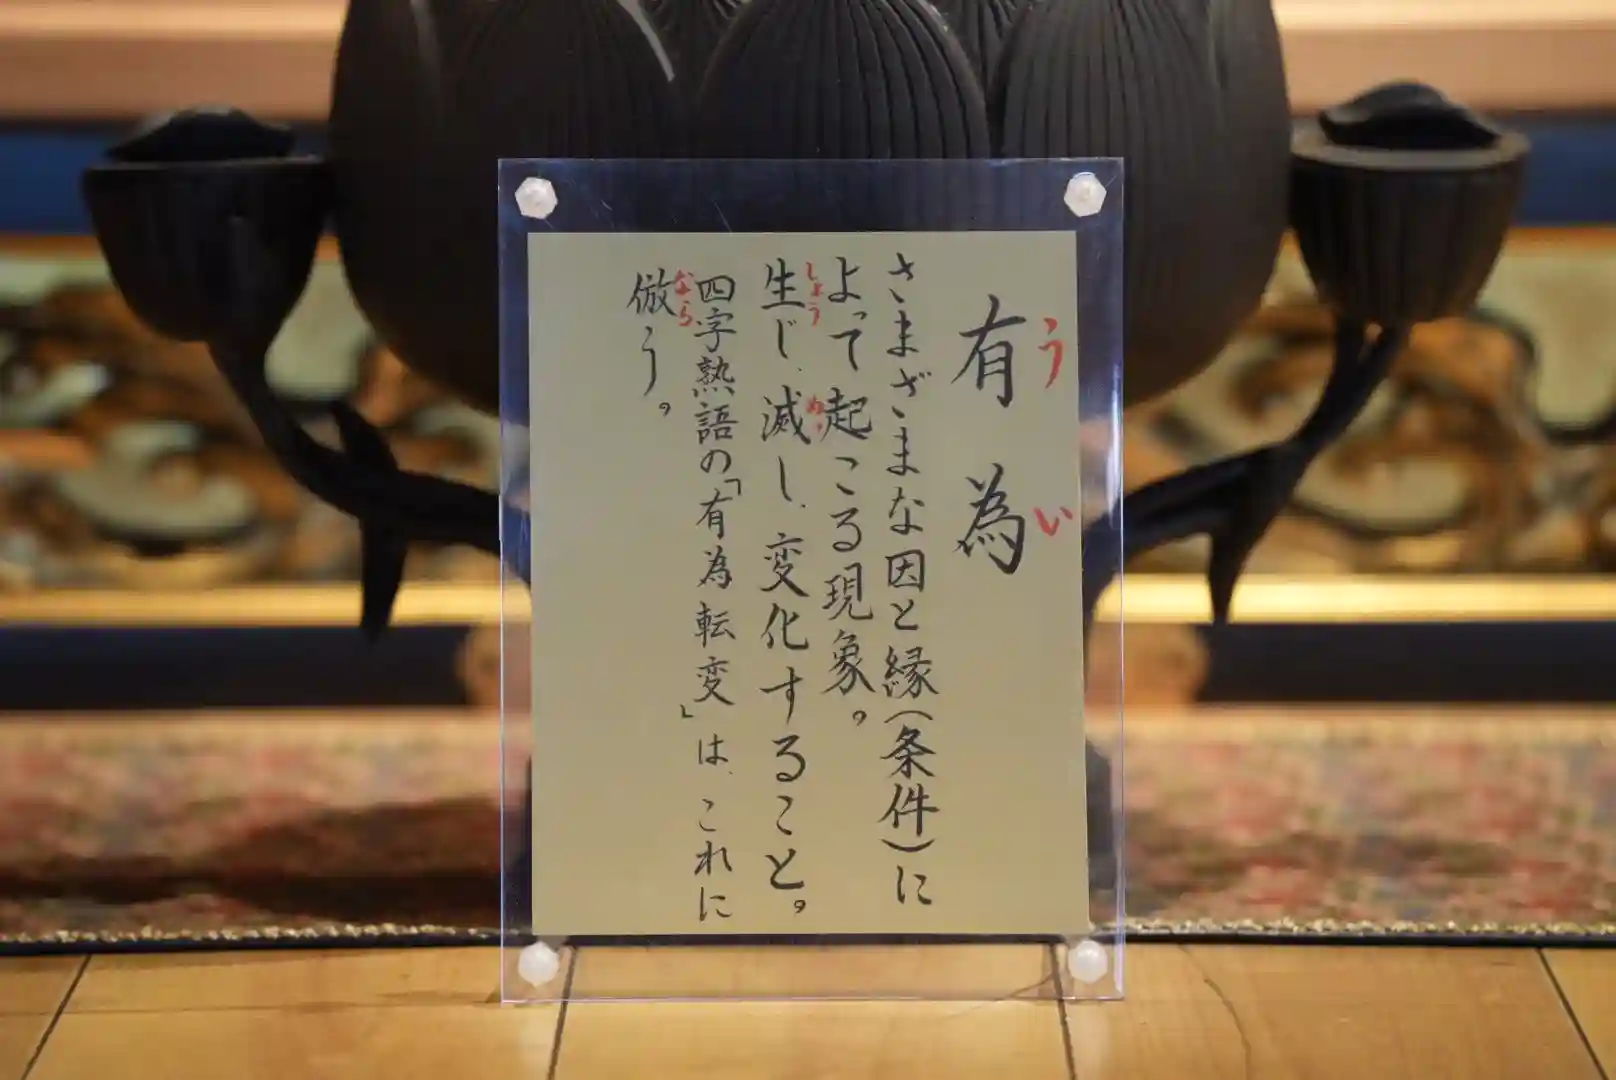 有為
うい
さまざまな因と縁(条件)に
よって起こる現象。
生じ、滅し、変化すること。
しょう
めっ
四字熟語の「有為転変」は、これに
倣う。
なら